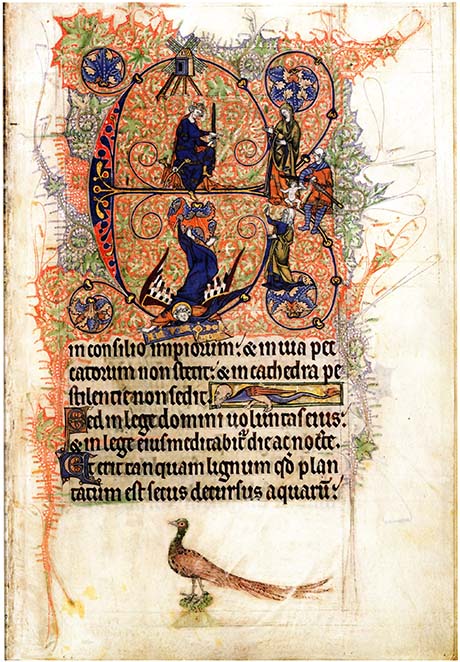 E
in consilio impiorum: & in uia pec
catorum non stetit: & in cathedra pe
stilencie non sedit.
Sed in lege domini uoluntas eius:
& in lege eius meditabit᷑ die ac nocte.
Et erit tanquam lignum qd̓ plan
tatum est secus decursus aquaru᷑: